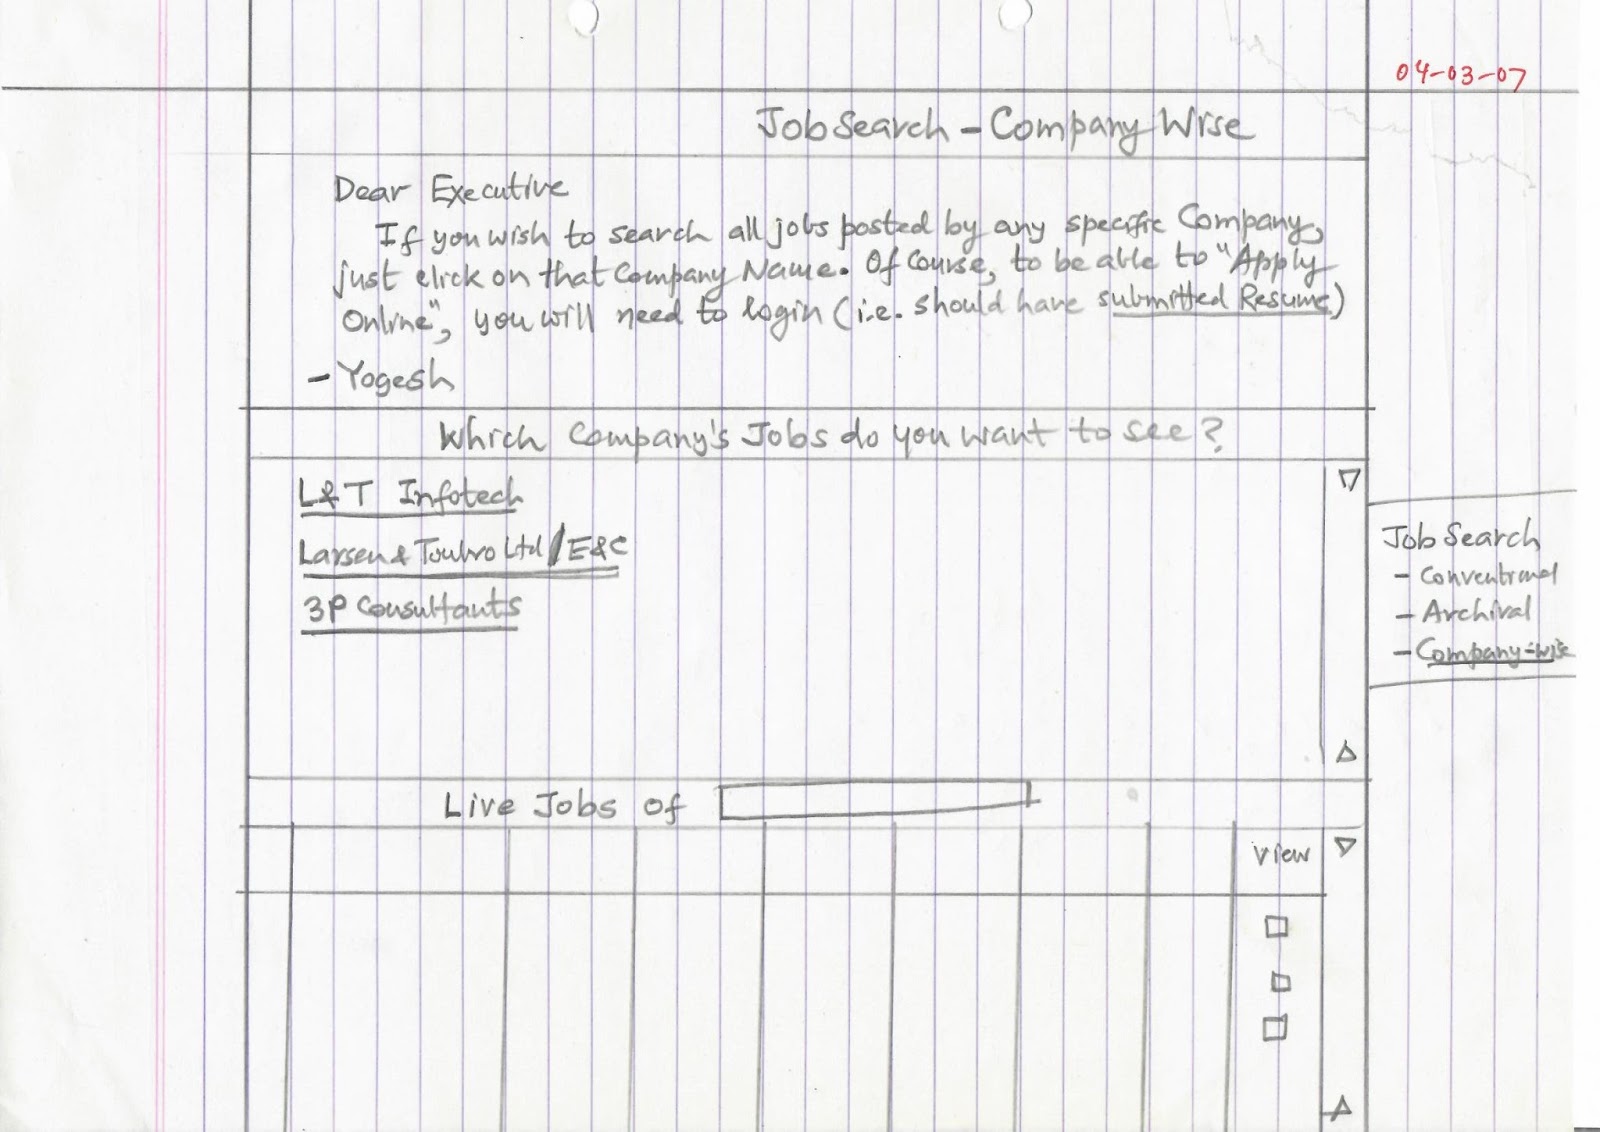 04-03-07
Job Search - Company Wise
Dear Executive
If you wish to search all jobs posted by any specific Company,
just click on that Company Name. Of Course, to be able to "Apply
Online", you will need to login (i.e. should have submitted Resume)
- Yogesh
Which Company's Jobs do you want to see?
L&T Infotech
Larsen & Toubro Ltd/E&C
3P Consultants
Job Search
- Conventional
- Archival
- Company-wise
Live Jobs of
View